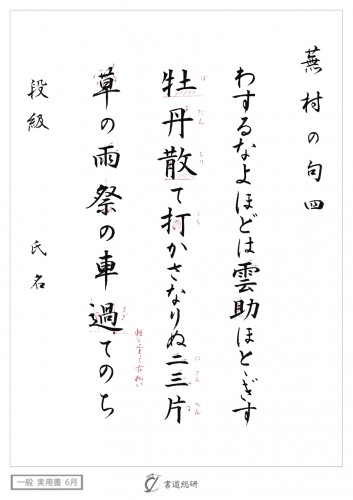 蕪村の句四
わするなよほどは雲助ほとゝぎす
牡丹散て打かさなりぬ二三片
ぼ たん ちり うち に さん ぺん
草の雨祭の車過てのち
すぎ
段級 氏名
一般 実用書 6月
書道総研